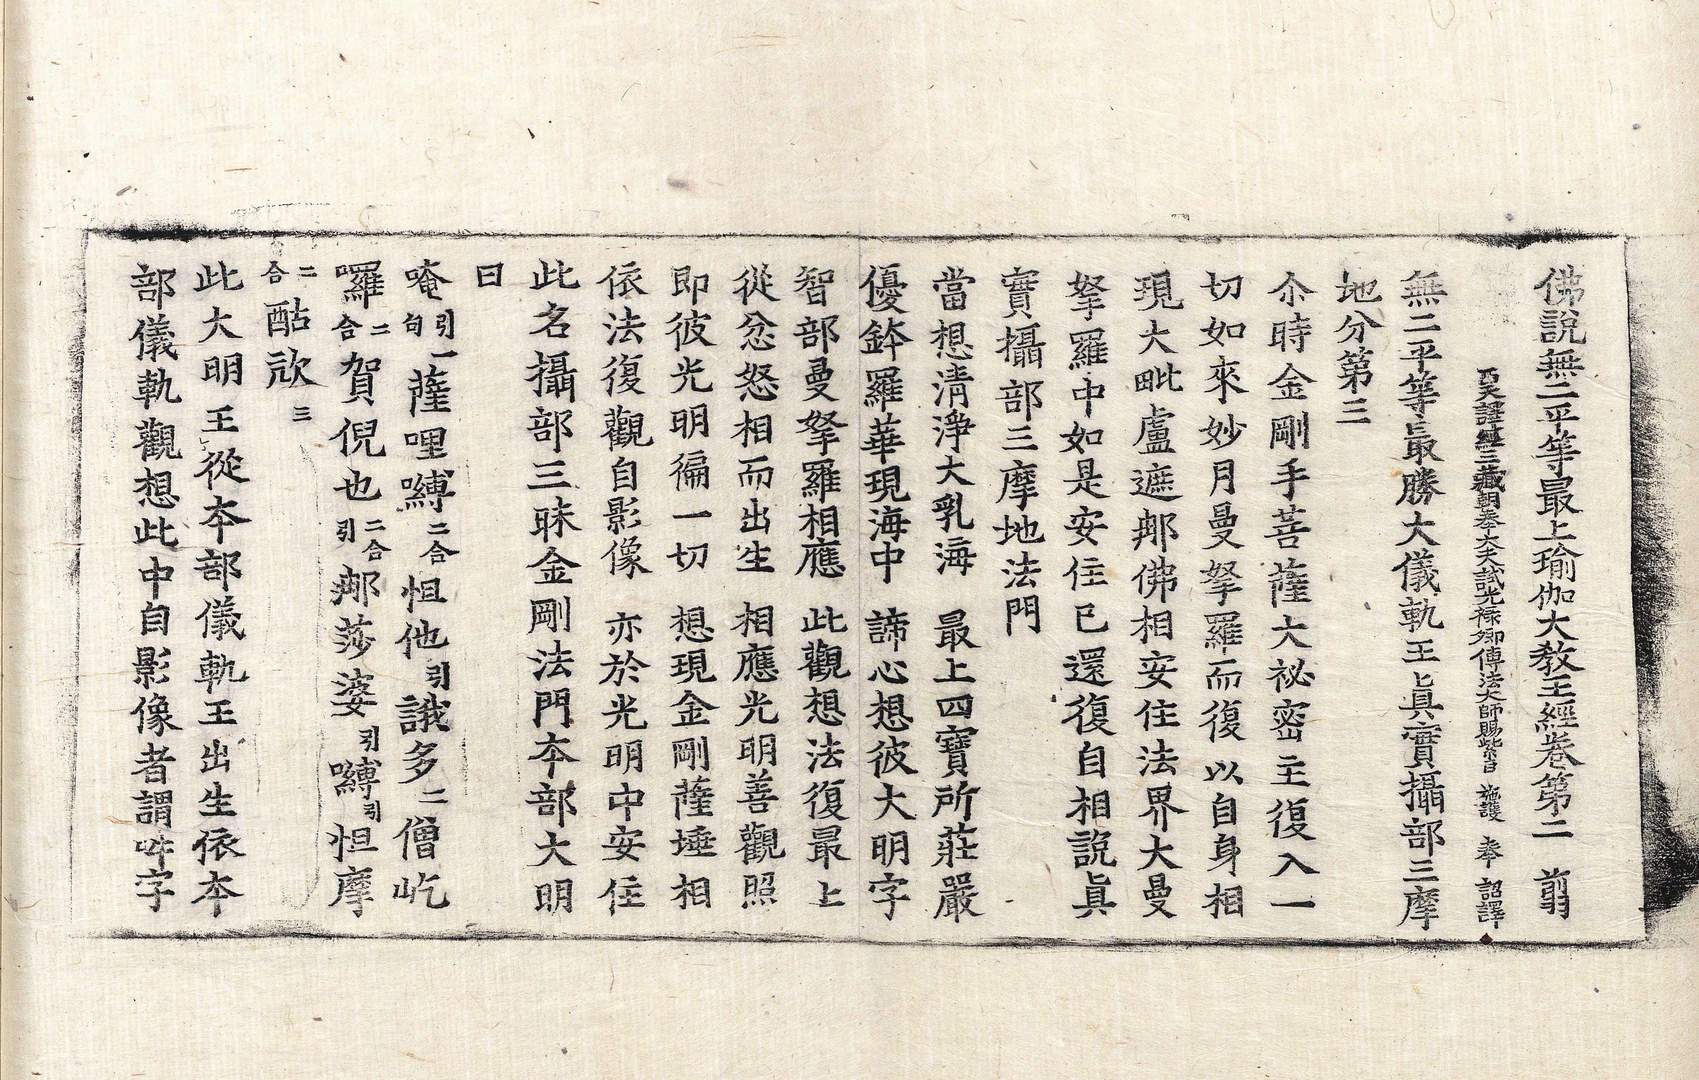 佛說無二平等最上瑜伽大教王經卷第二　翦
西天譯經三藏朝奉大夫試光祿卿傳法大師賜紫臣　施護　奉　詔譯
無二平等最勝大儀軌王眞實攝部三摩
地分第三
尒時金剛手菩薩大祕密主復入一
切如來妙月曼拏羅而復以自身相
現大毗盧遮那佛相安住法界大曼
拏羅中如是安住已還復自相說眞
實攝部三摩地法門
當想清淨大乳海　最上四寶所莊嚴
優鉢羅華現海中　諦心想彼大明字
智部曼拏羅相應　此觀想法復最上
從忿怒相而出生　相應光明善觀照
即彼光明徧一切　想現金剛薩埵相
依法復觀自影像　亦於光明中安住
此名攝部三昧金剛法門本部大明
曰
唵引一句薩哩嚩二合怛他引誐多二僧屹
囉二合賀倪也二合引那莎婆引嚩引怛摩
二合酤㰠三
此大明王從本部儀軌王出生依本
部儀軌觀想此中自影像者謂吽字